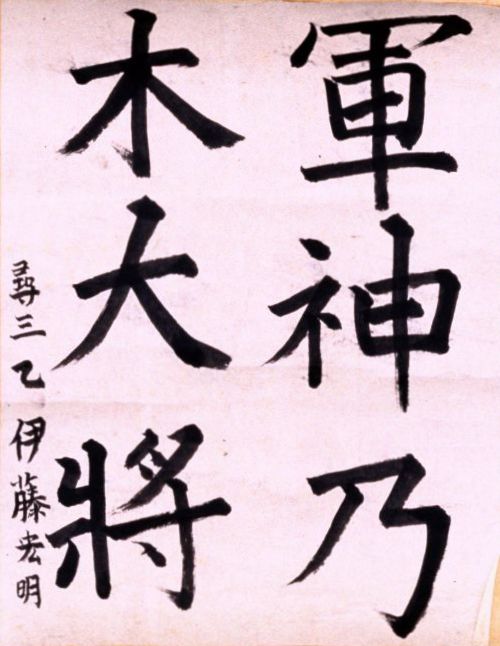 軍神乃
木大將
尋三乙伊藤宏明